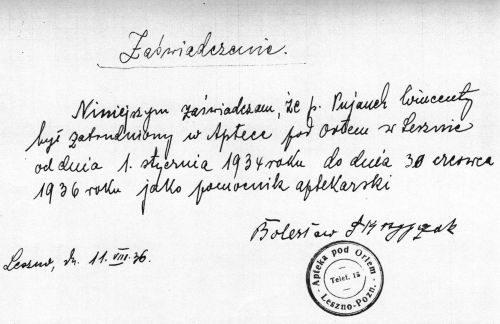 Zaświadczenie.
Niniejszym zaświadczam, że p. Pujanek Wincenty
był zatrudniony w Aptece pod Orłem w Lesznie
od dnia 1. stycznia 1934 roku do dnia 30 czerwca
1936 roku jako pomocnik aptekarski
Bolesław
Leszno, dn. 11. VIII. 36.
Apteka pod Orłem
Telef. 15
Leszno-Pozn.